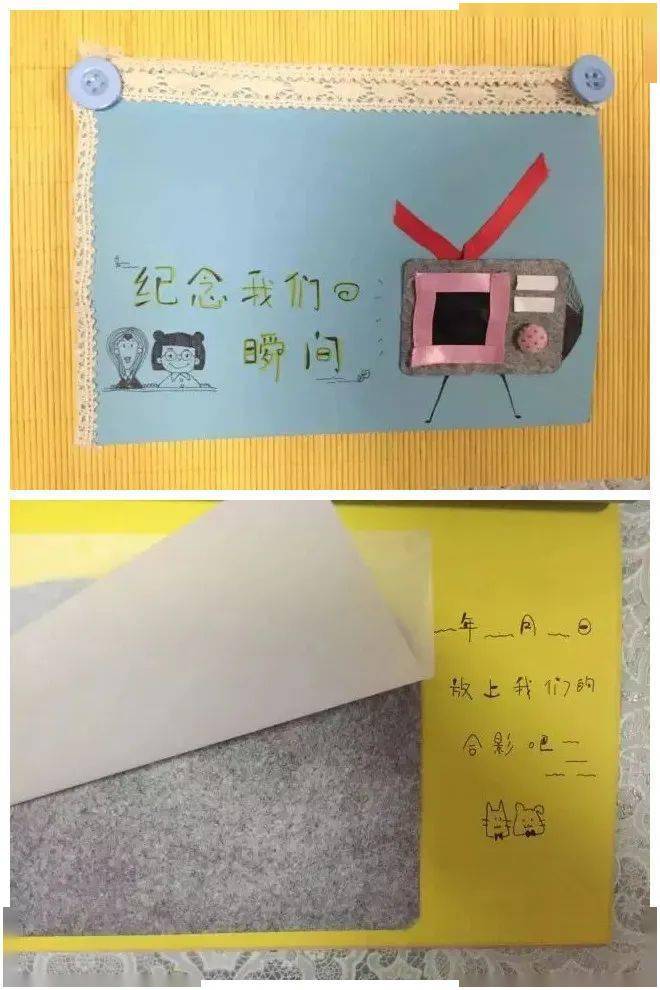 纪念我们
瞬间
年 月 日
放上我们的
合影吧